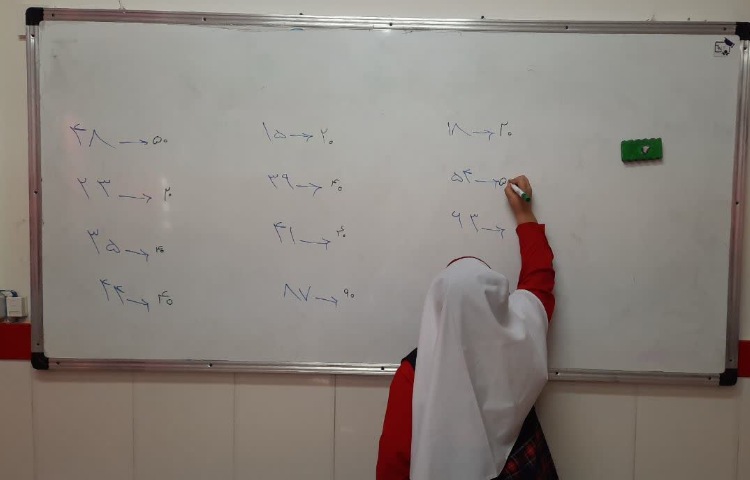 ۴۸ → ۵۰
۱۵ → ۲۰
۱۸ → ۲۰
۲۳ → ۲۰
۳۹ → ۴۰
۵۴ → ۵
۳۵ → ۴۰
۴۱ → ۴۰
۶۳ →
۴۴ → ۴۰
۸۷ → ۹۰